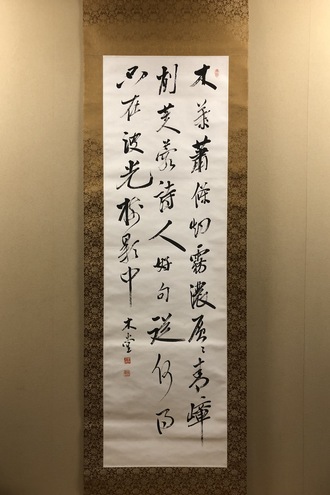 木葉蕭條霧濃層々青嶂
削芙蓉詩人好句從何得
只在波光影中
木堂